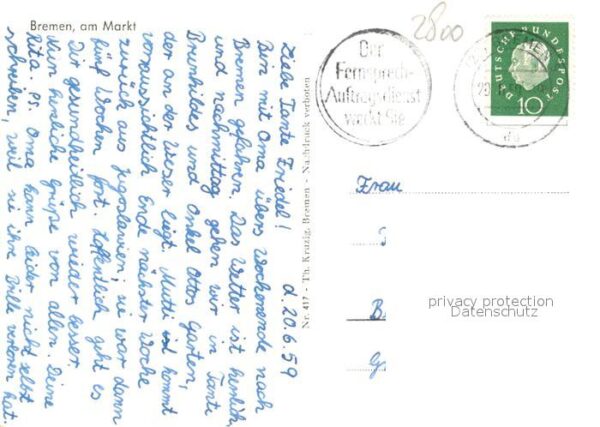 Bremen, am Markt
d. 20.6.59
Liebe Tante Friedel!
Bin mit Oma übers Wochenende nach
Bremen gefahren. Das Wetter ist herrlich,
und nachmittag gehen wir in Tante
Brunhildes und Onkel Ottos Garten,
der an der Weser liegt. Mutti kommt
voraussichtlich Ende nächster Woche
zurück aus Jugoslavien, sie war dann
fünf Wochen fort. Hoffentlich geht es
Dir gesundheitlich wieder besser.
Nun herzliche Grüße von allen. Deine
Rita. PS. Oma kann leider nicht selbst
schreiben, weil sie ihre Brille verloren hat.
Nr. 417 - Th. Krutzig, Bremen - Nachdruck verboten
2800
Der
Fernsprech-
Auftragsdienst
weckt Sie
DEUTSCHE BUNDESPOST
10
Frau
B
G
privacy protection
Datenschutz